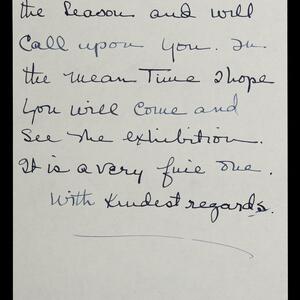 the Season and will
Call upon you. In
the mean Time I hope
you will come and
see the exhibition.
It is a very fine one.
With Kindest regards.